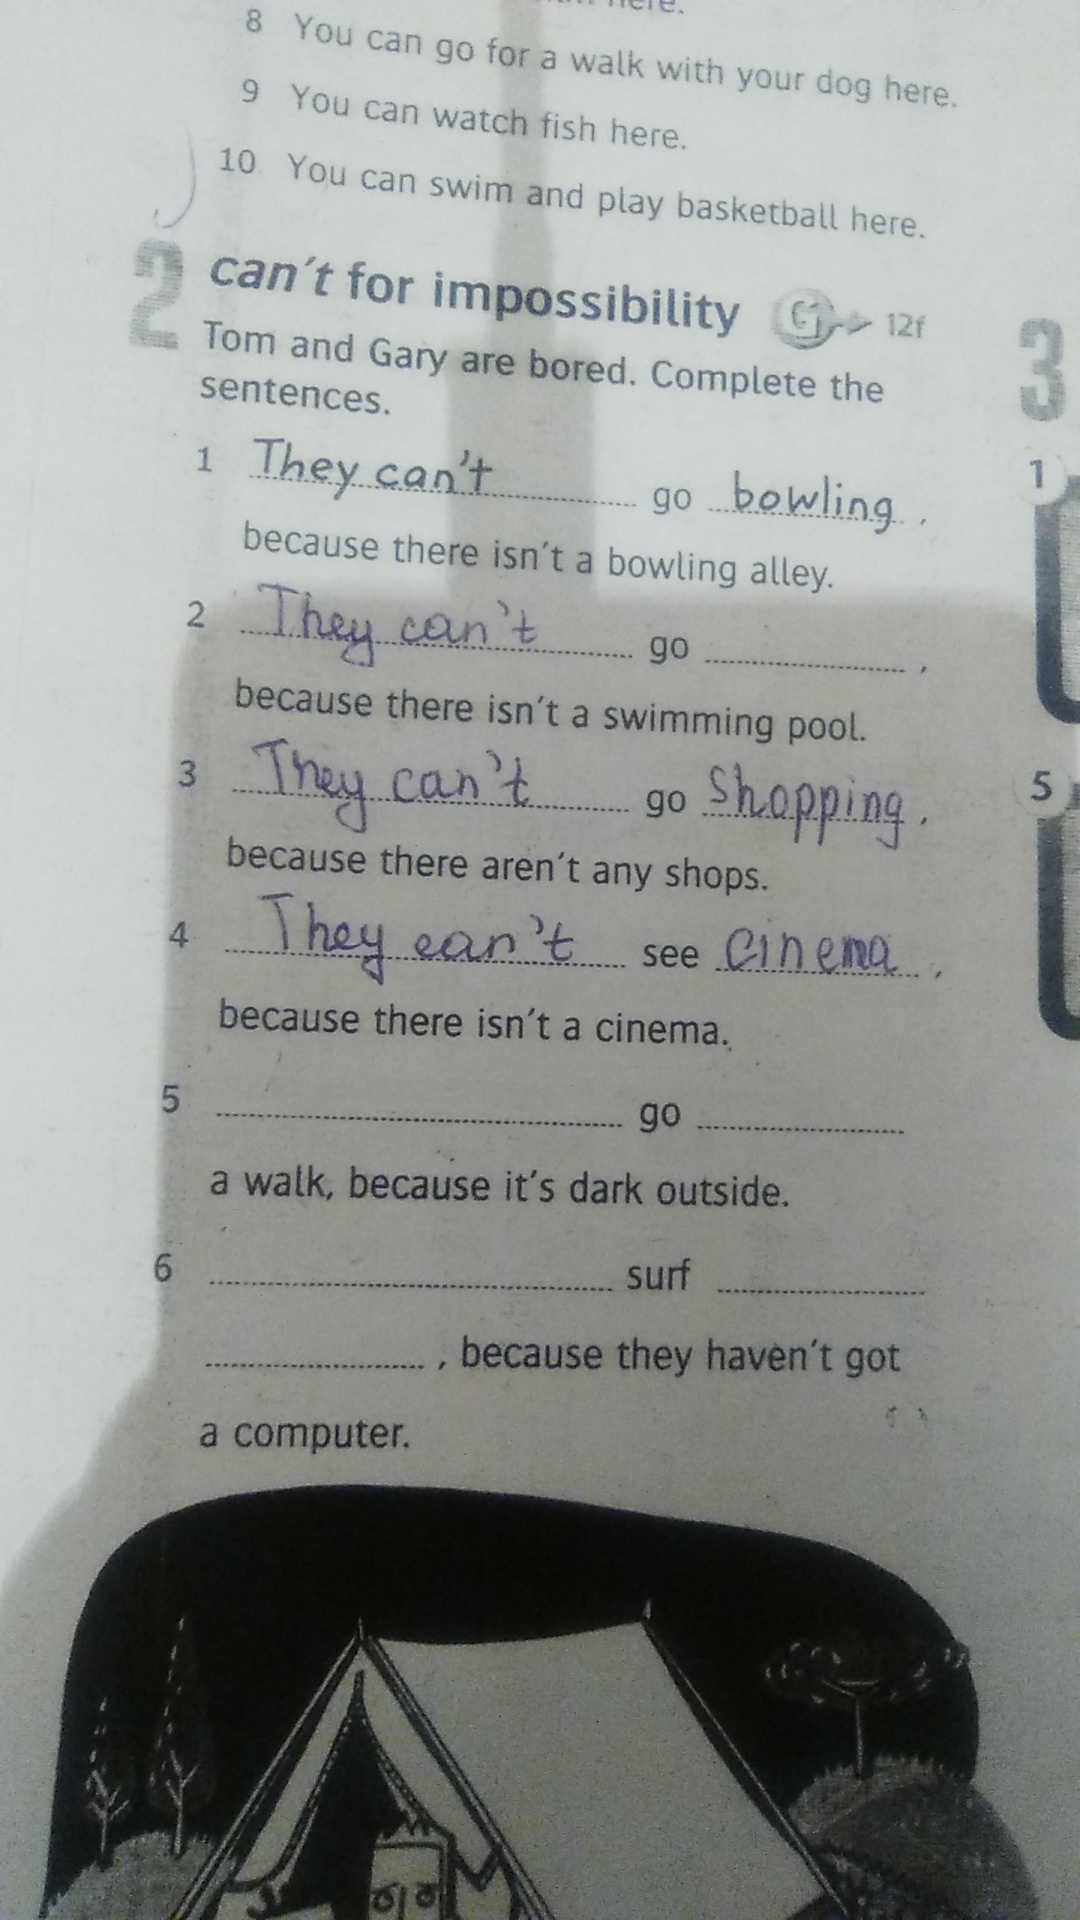 here.
8 You can go for a walk with your dog here.
9 You can watch fish here.
10 You can swim and play basketball here.
2 can't for impossibility G 12f
Tom and Gary are bored. Complete the
sentences.
1 They can't go bowling,
because there isn't a bowling alley.
2 They can't go ,
because there isn't a swimming pool.
3 They can't go Shopping,
because there aren't any shops.
4 They can't see cinema,
because there isn't a cinema.
5 go
a walk, because it's dark outside.
6 surf
, because they haven't got
a computer.
3
1
5